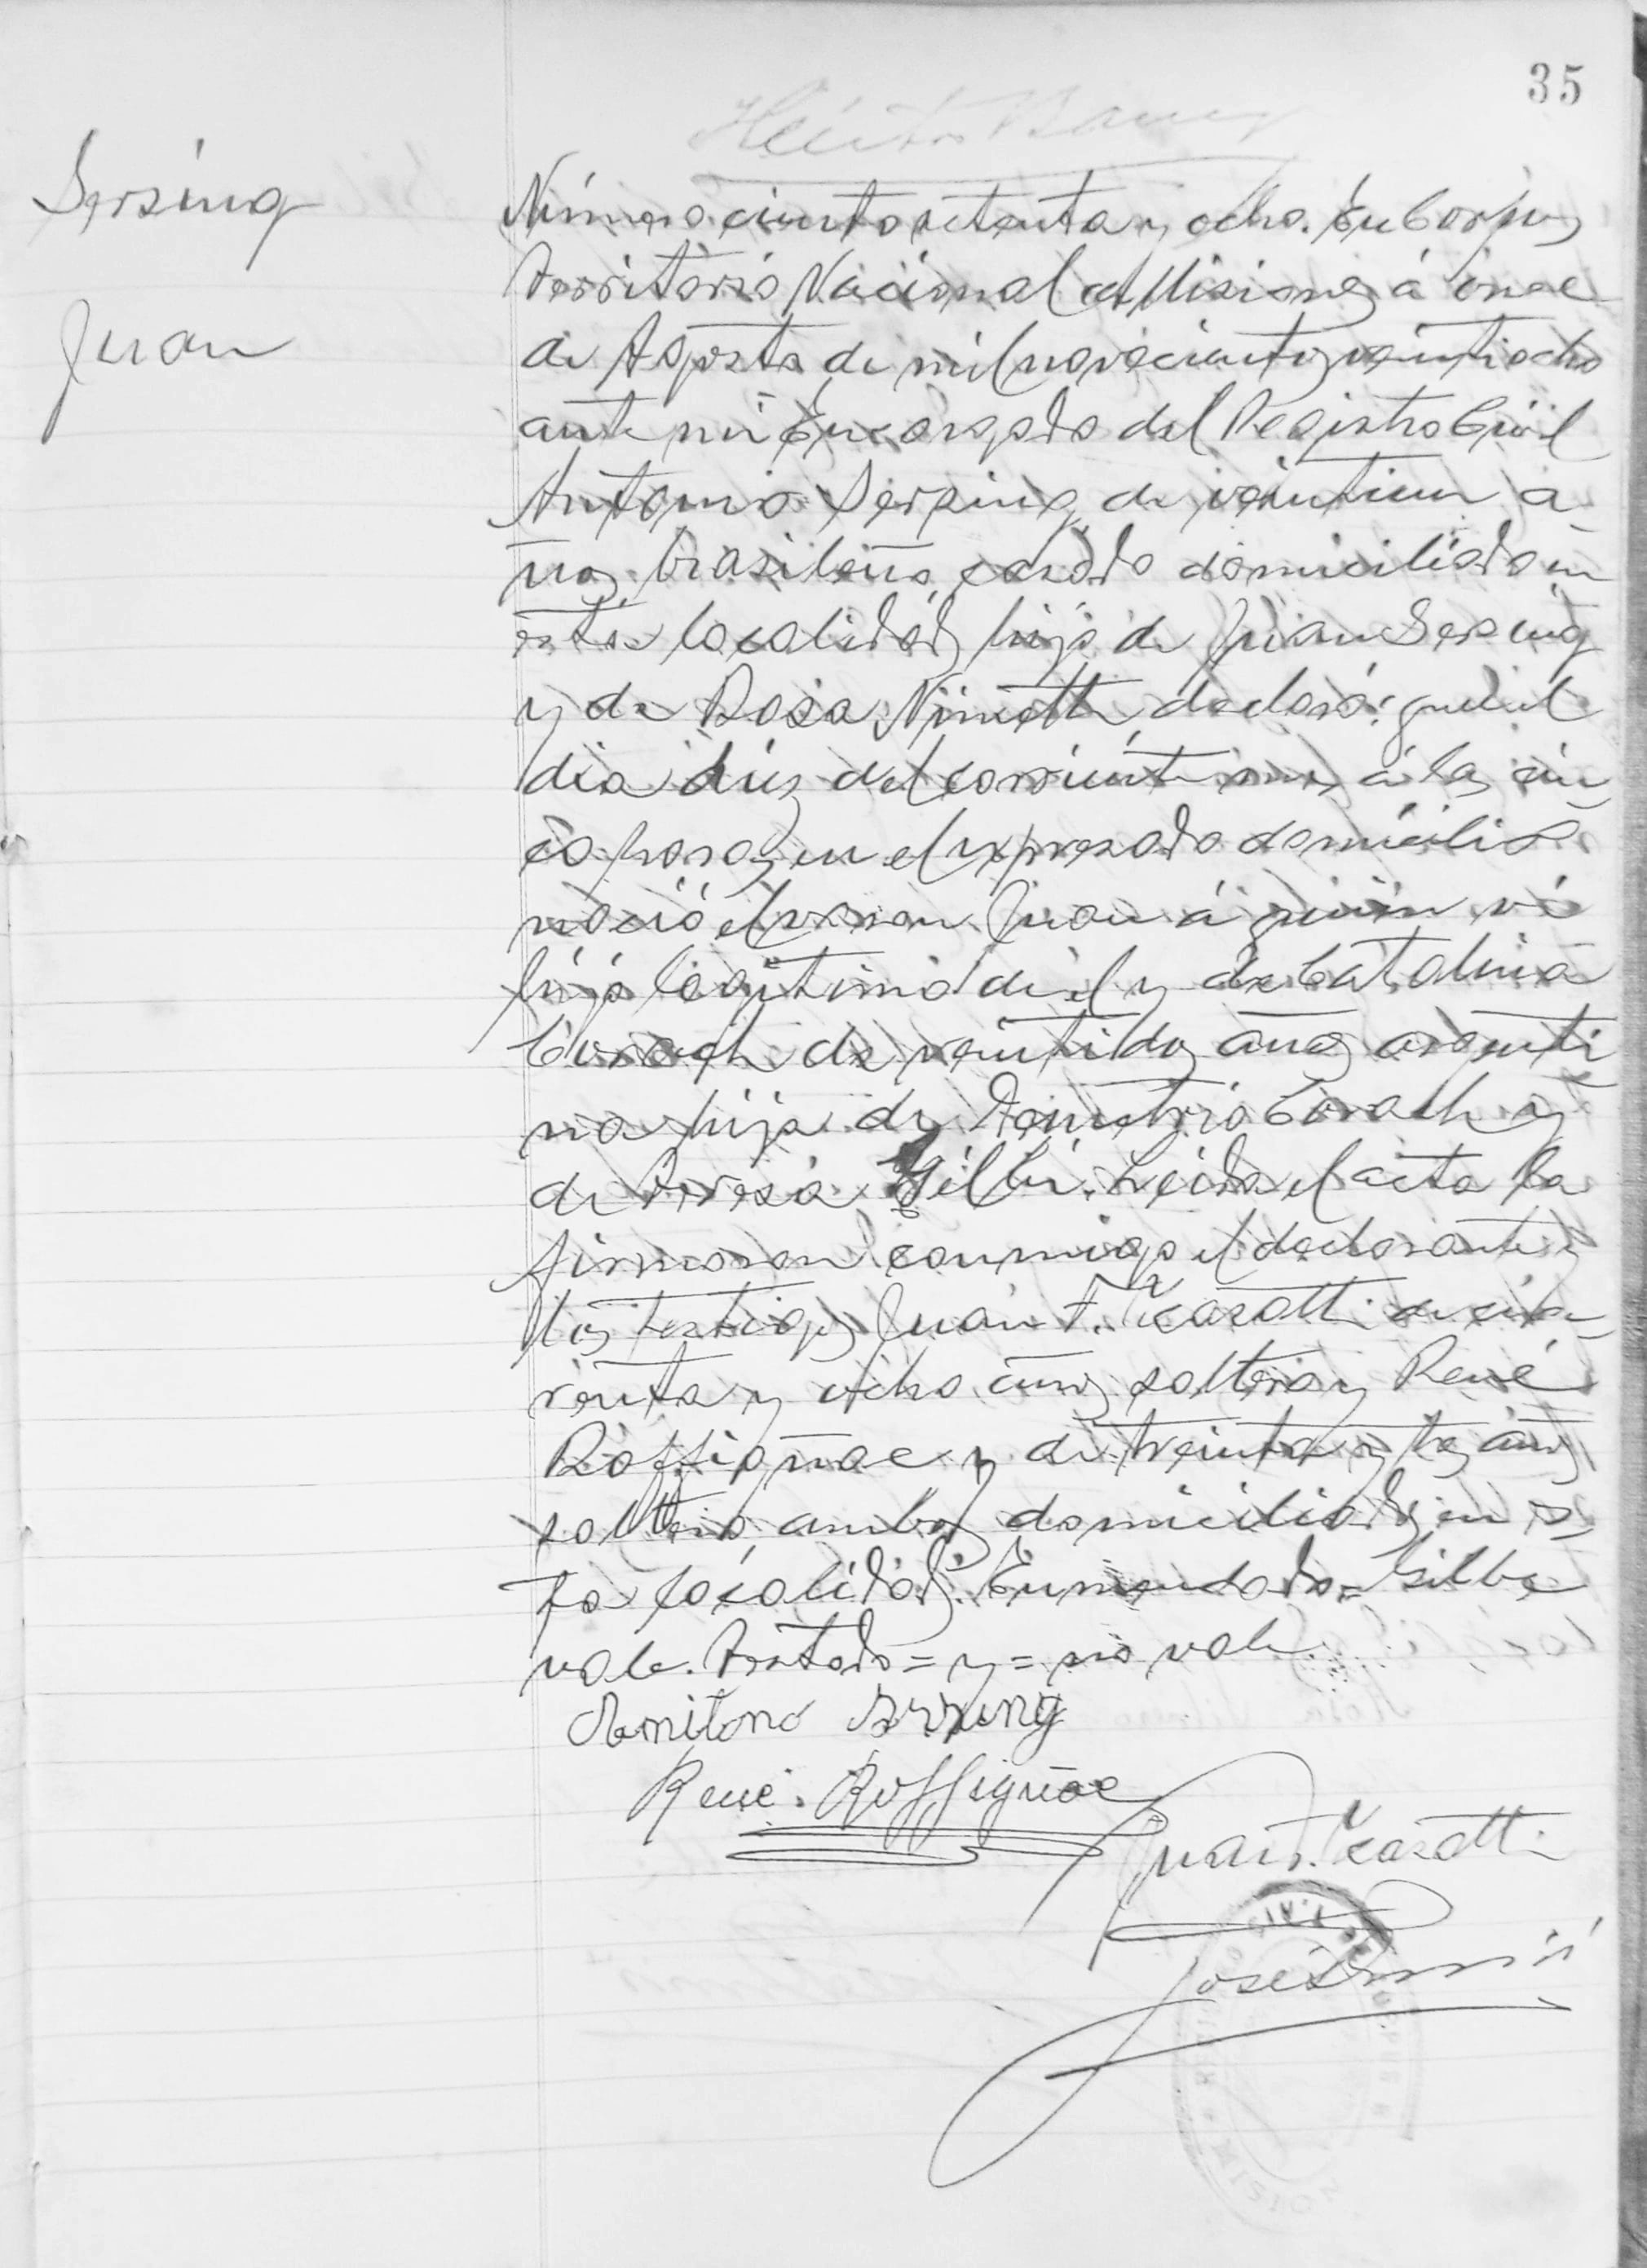 35
Sersing
Juan
Número ciento setenta y ocho. En Corpus
Territorio Nacional de Misiones á once
de Agosto de mil novecientos veintiocho
ante mi Encargado del Registro Civil
Antonio Sersing, de veintiun a-
ños, brasileño, casado domiciliado en
esta localidad, hijo de Juan Sersing
y de Rosa declaró: que el
dia diez del corriente mes á las cin
co horas en el expresado domicilio
nació el varon Juan á quien vi
hijo legitimo de el y de Catalina
de veintidos años argenti
na hija de Demetrio y
de Teresa Leida el acta la
firmaron conmigo el declarante y
los testigos Juan T. de cua-
renta y ocho años soltero y René
Roffignac y de treinta y tres años
soltero ambos domiciliados en es-
ta localidad. Enmendado= Gilbe
vale. Testado = y = no vale.
Antonio Sersing
René Roffignac
Juan T.
José